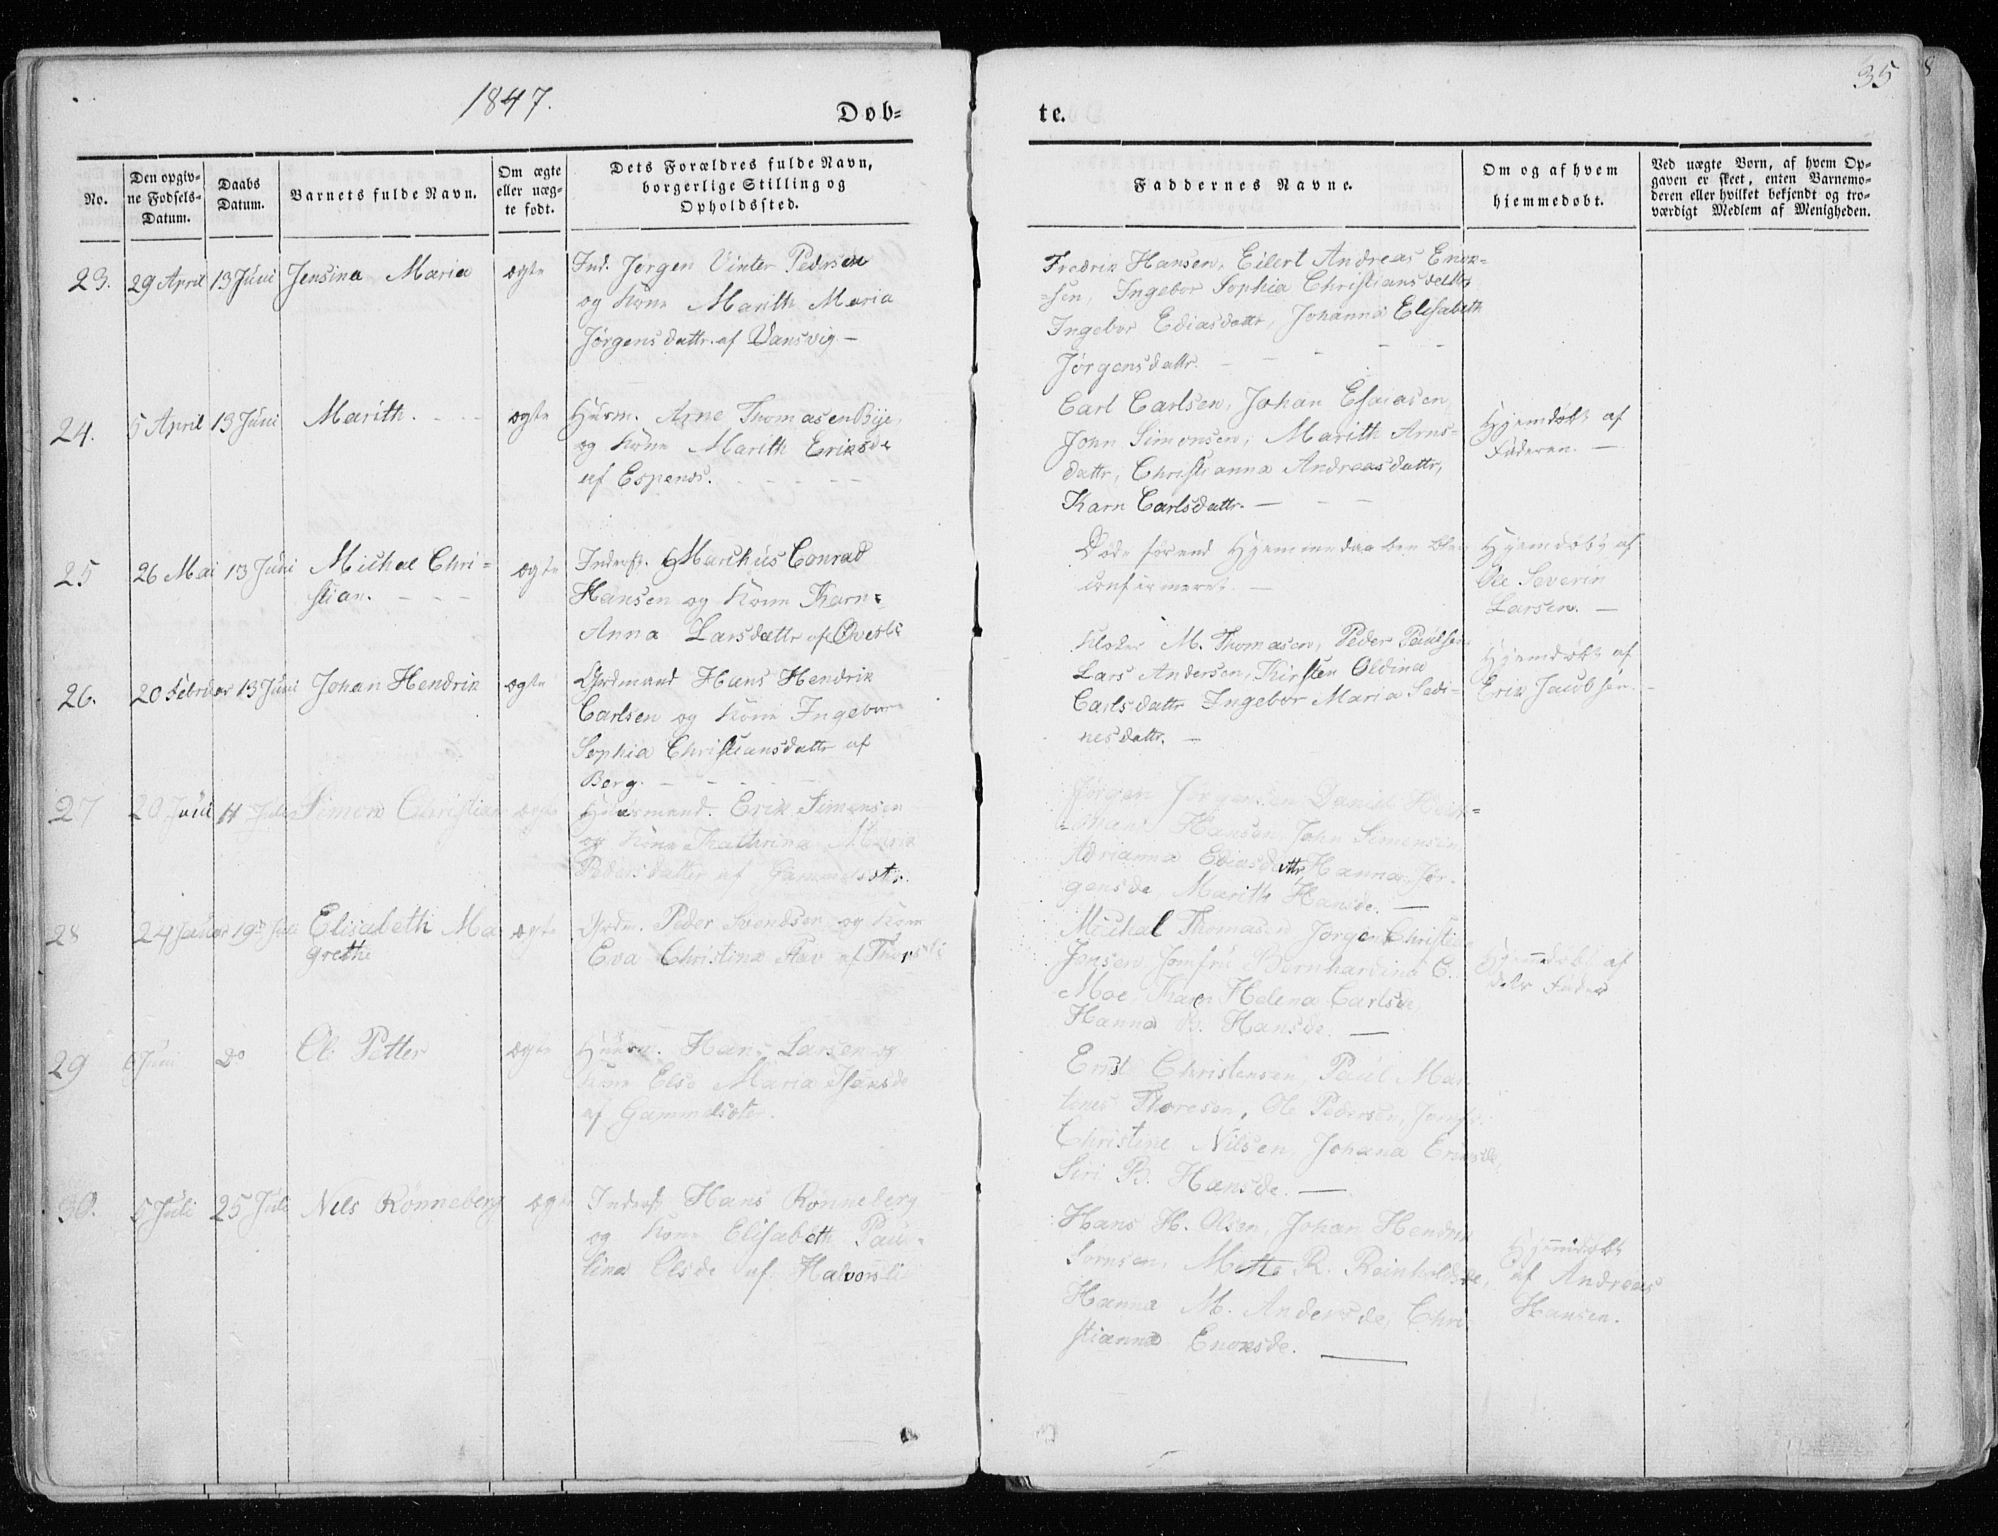 1847.
Døb-
te.
35
8
No.
Den opgiv-
ne Fødsels-
Datum.
Daabs
Datum.
Barnets fulde Navn.
Om ægte
eller uæg-
te født.
Dets Forældres fulde Navn,
borgerlige Stilling og
Opholdssted.
Faddernes Navne.
Om og af hvem
hjemmedøbt.
Ved uægte Børn, af hvem Op-
gaven er skeet, enten Barnemo-
deren eller hvilket bekjendt og tro-
værdigt Medlem af Menigheden.
23. 29 April 13 Juni Jensina Maria ægte
Ind. Jørgen Vinter Pedersen
og Kone Marith Maria
Jørgensdattr. af Vansvig -
Fredrik Hansen, Eilert Andreas Enok-
sen, Ingebor Sophia Christiansdattr,
Ingebor Ediasdattr, Johanna Elisabeth
Jørgensdattr.
24. 5 April 13 Juni Marith. ægte
Husm. Arne Thomasen Bye,
og Kone Marith Eriksde
af Espenes.
Carl Carlsen, Johan Esaiasen,
John Simonsen, Marith Arns-
dattr, Christianna Andreasdattr,
Karn Carlsdattr. -
Hjemdøbt af
Faderen. -
25 26 Mai 13 Juni Michel Chri-
stian. ægte
Inderst. Marchus Conrad
Hansen og Kone Karn-
Anna Larsdattr af
Døde førend Hjemmedaaben blev
confirmeret. -
Hjemdøbt af
Ole Severin
Larsen. -
26. 20 Februar 13 Juni Johan Hendrik ægte
Grdmand Hans Hendrik
Carlsen og Kone Ingebor
Sophia Christiansdattr af
Berg.
Kloker M. Thomasen, Peder Paulsen,
Lars Andersen, Kirsten Oldina
Carlsdattr Ingebor Maria Sedi-
nesdattr. -
Hjemdøbt af
Erik Jacobsen. -
27 20 Juni 11 Juli Simen Christian ægte
Huusmand. Erik Simensen
og Kone Kathrina Maria
Pedersdatter af
Jørgen Jørgensen, Daniel
Hansen, John Simensen
Adrianna Ediasdattr, Hanna Jør-
gensde, Marith Hansde. -
28 24 Januar Elisabeth Ma
grethe ægte
Grdm. Peder Svendsen og Kone
Eva Christina af
Michal Thomasen Jørgen Christian
Jensen, Jomfru Bernhardina C.
Moe, Karn Helena Carlsde
Hanna B. Hansde. -
Hjemmedøbt af
dets Fader
29 6 Juni Do Ole Petter ægte
Huusm. Hans Larsen og
Kone Else Maria Hansde
af
Christensen, Paul Mar
tines Thoresen, Ole Pedersen, Jomfr.
Christine Nilsen, Johana
Siri B. Hansde. -
30. 5 Juli 25 Juli Nils Rønneberg ægte
Inderst Hans Rønneberg
og Kone Elisabeth Pau-
lina Olsde af Halvorsli
Hans H. Olsen, Johan Hendrik
Sørnsen, Mette R. Reinholdsde,
Hanna M. Andersde, Chri
stianna Enoksde.
Hjemmdøbt
af Andreas
Hansen.